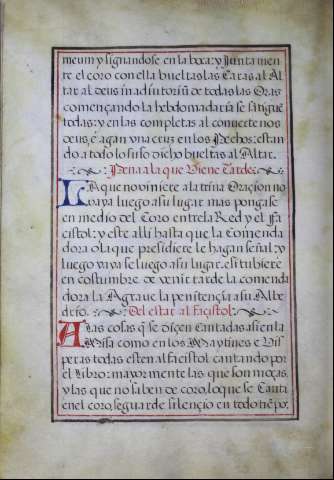 meum y signandose en la boca: y Junta men
te el coro con ella bueltas las Caras al Al
tar al deus in adiutoriũ de todas las Oras
començando la hebdomadaria se sãtigue
todas: y en las completas al conuerte nos
deus, ẽ agan vna cruz en los Pechos: estan
do a todo lo suso dicho bueltas al Altar.
Pena a la que Viene Tarde.
LA que no viniere a la trina Oracion no
vaya luego a su lugar mas pongase
en medio del Coro entre la Red y el Fa
cistol: y este alli hasta que la Comenda
dora o la que presidiere le hagan señal: y
luego vayase luego a su lugar. e si tubiere
en costumbre de venir tarde la comenda
dora la Agraue la penitençia a su Albe
drio. Del estar al façistol.
A las cosas q̃ se diçen Cantadas asi en la
Misa como en los Maytines e Vis
peras todas esten al facistol cantando por
el Libro: mayormente las que son moças,
y las que no saben de coro, lo que se Canta
en el coro, se guarde silençio en todo tiẽpo: